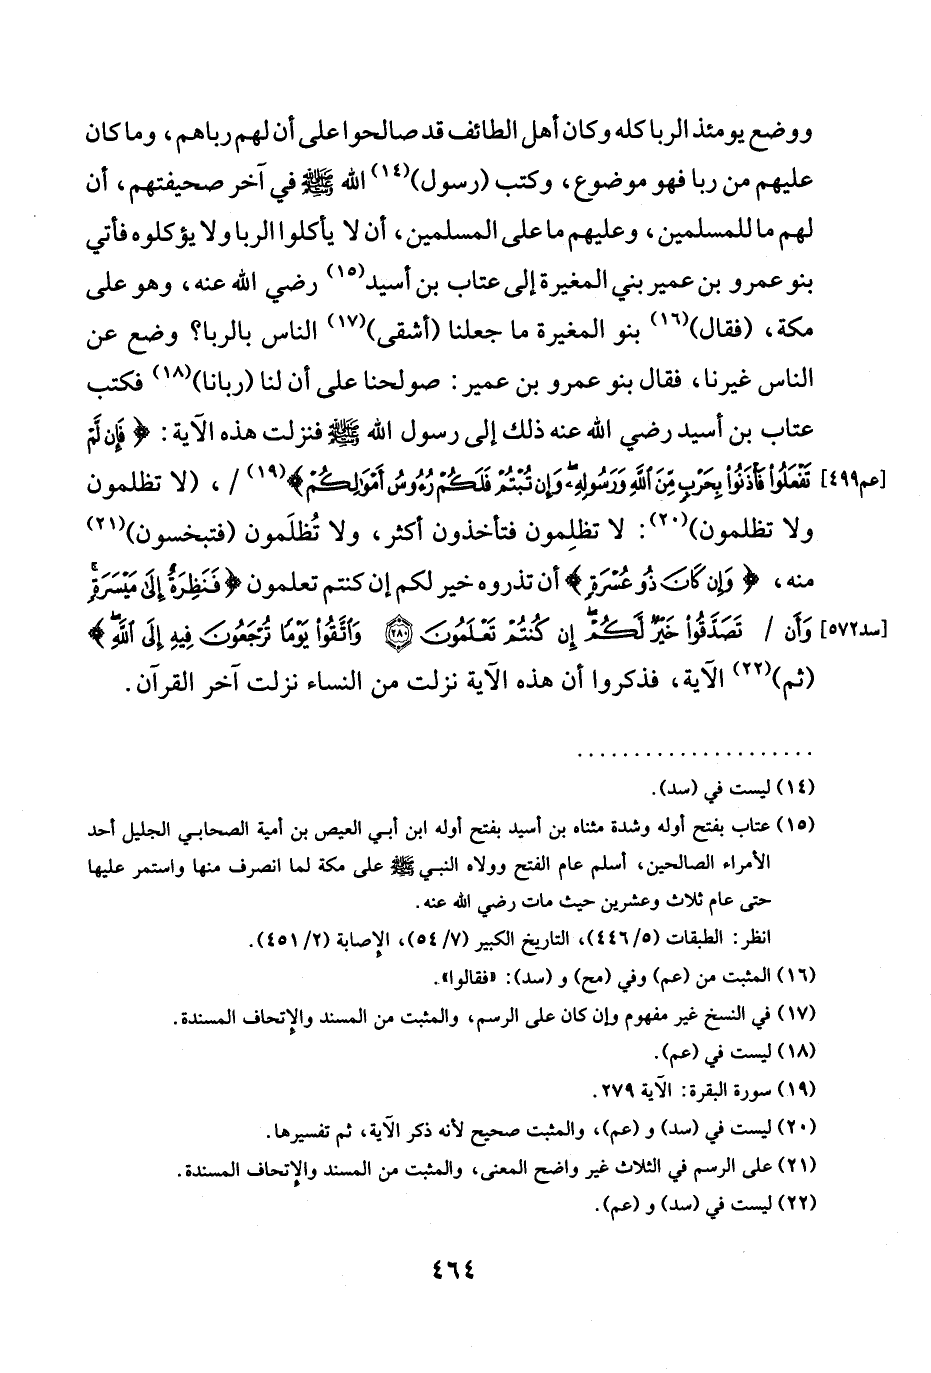 ووضع يومئذ الربا كله وكان أهل الطائف قد صالحوا على أن لهم رباهم، وما كان
عليهم من ربا فهو موضوع، وكتب (رسول)(١٤) الله ﷺ في آخر صحيفتهم، أن
لهم ما للمسلمين، وعليهم ما على المسلمين، أن لا يأكلوا الربا ولا يؤكلوه فأتي
بنو عمرو بن عمير بني المغيرة إلى عتاب بن أسيد(١٥) رضي الله عنه، وهو على
مكة، (فقال)(١٦) بنو المغيرة ما جعلنا (أشقى)(١٧) الناس بالربا؟ وضع عن
الناس غيرنا، فقال بنو عمرو بن عمير: صولحنا على أن لنا (ربانا)(١٨) فكتب
عتاب بن أسيد رضي الله عنه ذلك إلى رسول الله ﷺ فنزلت هذه الآية: ﴿ فَإِن لَّمْ
[عم٤٩٩] تَفْعَلُوا۟ فَأْذَنُوا۟ بِحَرْبٍ مِّنَ ٱللَّهِ وَرَسُولِهِۦ ۖ وَإِن تُبْتُمْ فَلَكُمْ رُءُوسُ أَمْوَٰلِكُمْ ﴾(١٩) /، (لا تظلمون
ولا تظلمون)(٢٠): لا تظلِمون فتأخذون أكثر، ولا تُظلَمون (فتبخسون)(٢١)
منه، ﴿ وَإِن كَانَ ذُو عُسْرَةٍ ﴾ أن تذروه خير لكم إن كنتم تعلمون ﴿ فَنَظِرَةٌ إِلَىٰ مَيْسَرَةٍ ۚ
[سد٥٧٢] وَأَن / تَصَدَّقُوا۟ خَيْرٌ لَّكُمْ ۖ إِن كُنتُمْ تَعْلَمُونَ ﴿٢٨٠﴾ وَٱتَّقُوا۟ يَوْمًا تُرْجَعُونَ فِيهِ إِلَى ٱللَّهِ ۖ ﴾
(ثم)(٢٢) الآية، فذكروا أن هذه الآية نزلت من النساء نزلت آخر القرآن.
.....................
(١٤) ليست في (سد).
(١٥) عتاب بفتح أوله وشدة مثناه بن أسيد بفتح أوله ابن أبي العيص بن أمية الصحابي الجليل أحد
الأمراء الصالحين، أسلم عام الفتح وولاه النبي ﷺ على مكة لما انصرف منها واستمر عليها
حتى عام ثلاث وعشرين حيث مات رضي الله عنه.
انظر: الطبقات (٤٤٦/٥)، التاريخ الكبير (٥٤/٧)، الإصابة (٤٥١/٢).
(١٦) المثبت من (عم) وفي (مح) و (سد): «فقالوا».
(١٧) في النسخ غير مفهوم وإن كان على الرسم، والمثبت من المسند والإتحاف المسندة.
(١٨) ليست في (عم).
(١٩) سورة البقرة: الآية ٢٧٩.
(٢٠) ليست في (سد) و (عم)، والمثبت صحيح لأنه ذكر الآية، ثم تفسيرها.
(٢١) على الرسم في الثلاث غير واضح المعنى، والمثبت من المسند والإتحاف المسندة.
(٢٢) ليست في (سد) و (عم).
٤٦٤